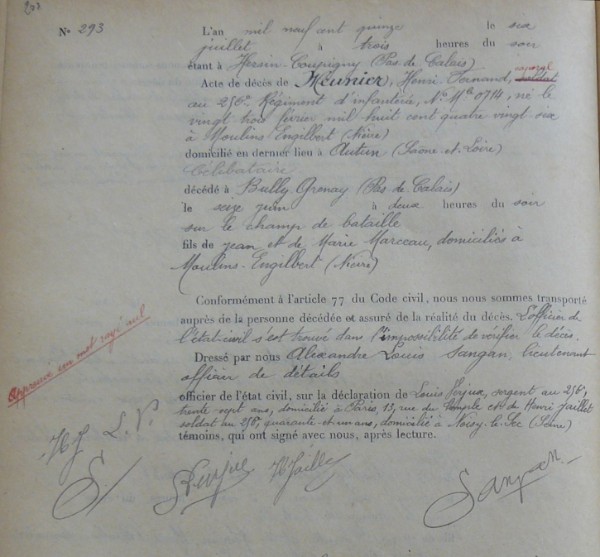 N° 293
L'an mil neuf cent quinze le six
juillet à trois heures du soir
étant à Hersin-Coupigny (Pas de Calais)
Acte de décès de Meunier, Henri Fernand, caporal soldat
au 256e Régiment d'infanterie, N° Mle 0714, né le
vingt trois février mil huit cent quatre vingt six
à Moulins Engilbert (Nièvre)
domicilié en dernier lieu à Autun (Saône-et-Loire)
Célibataire
décédé à Bully Grenay (Pas de Calais)
le seize juin à deux heures du soir
sur le champ de bataille
fils de Jean et de Marie Marceau, domiciliés à
Moulins-Engilbert (Nièvre)
Conformément à l'article 77 du Code civil, nous nous sommes transporté
auprès de la personne décédée et assuré de la réalité du décès. L'officier de
l'état-civil s'est trouvé dans l'impossibilité de vérifier le décès.
Dressé par nous Alexandre Louis Sangan, lieutenant
officier de détails
officier de l'état civil, sur la déclaration de Louis sergent au 256e,
trente sept ans, domicilié à Paris, 13, rue du Temple et de Henri Jaillet
soldat au 256e, quarante et un ans, domicilié à Noisy-le-Sec (Seine)
témoins, qui ont signé avec nous, après lecture.
Approuvé un mot rayé nul
HJ L.P.
S
HJaillet
Sangan